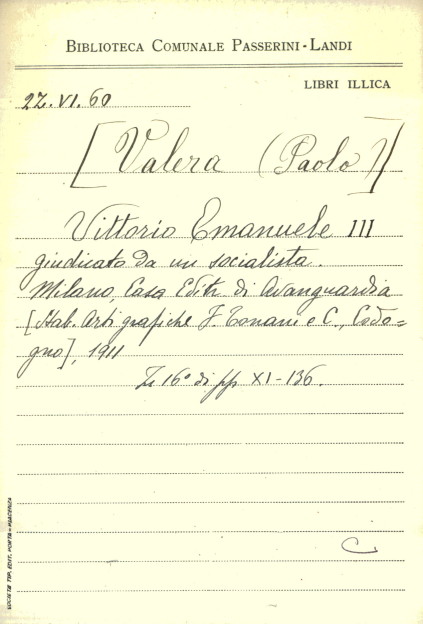 BIBLIOTECA COMUNALE PASSERINI-LANDI
LIBRI ILLICA
22.VI.60
[Valera (Paolo)]
Vittorio Emanuele III
giudicato da un socialista.
Milano, Casa Editr. di Avanguardia
[Stab. Arti grafiche F. Conani e C., Codo=
gno], 1911
In 16° di pp XI-136.
C
SOCIETÀ TIP. EDIT. PORTA - PIACENZA